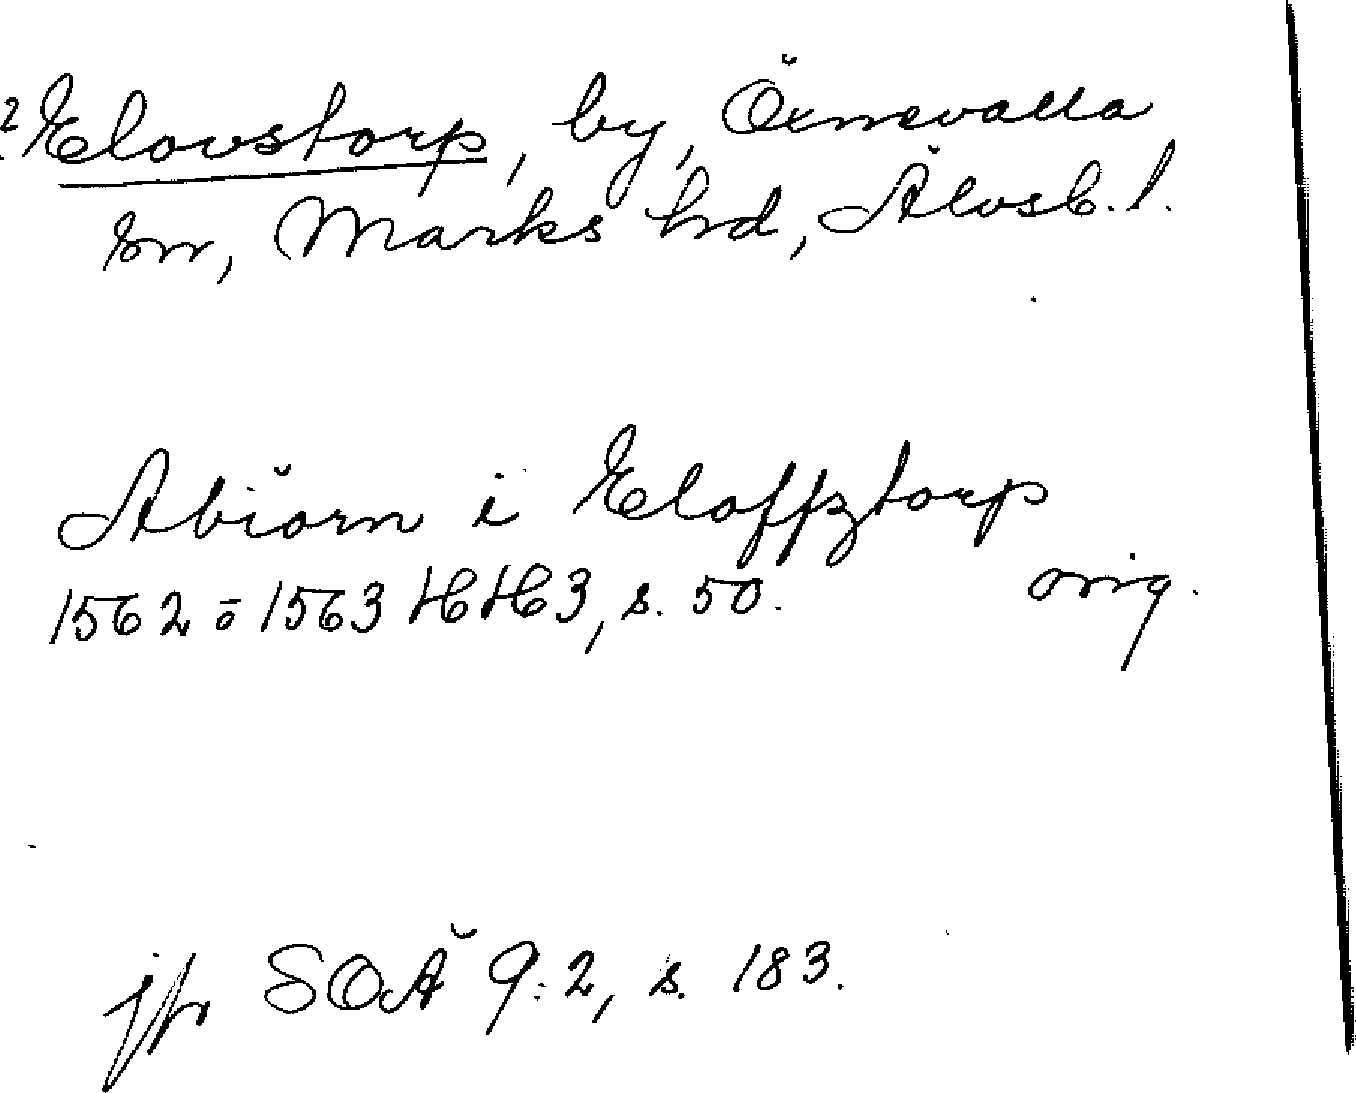 ? Elovstorp, by, Örnevalla
sn, Marks hd, Älvsb. l.
Abiörn i Eloffztorp
1562 ö 1563 HH 3, s. 50. orig.
jfr SOÄ 9:2, s. 183.